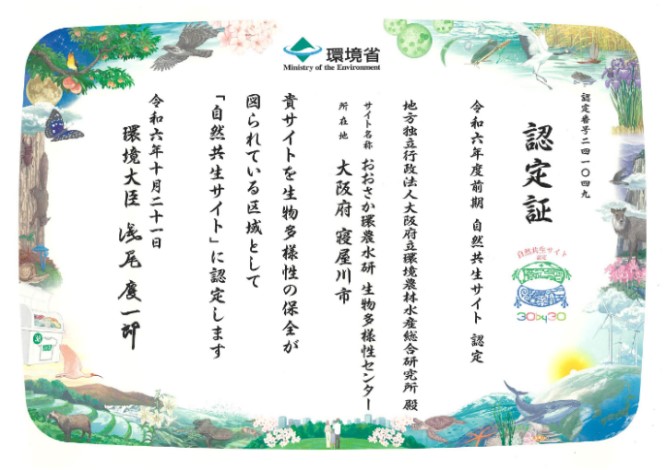 環境省
Ministry of the Environment
認定番号二四一〇四九
認定証
自然共生サイト
認定
30by30
令和六年度前期 自然共生サイト 認定
地方独立行政法人大阪府立環境農林水産総合研究所 殿
サイト名称 おおさか環農水研 生物多様性センター
所在地 大阪府 寝屋川市
貴サイトを生物多様性の保全が
図られている区域として
「自然共生サイト」に認定します
令和六年十月二十一日
環境大臣 浅尾慶一郎